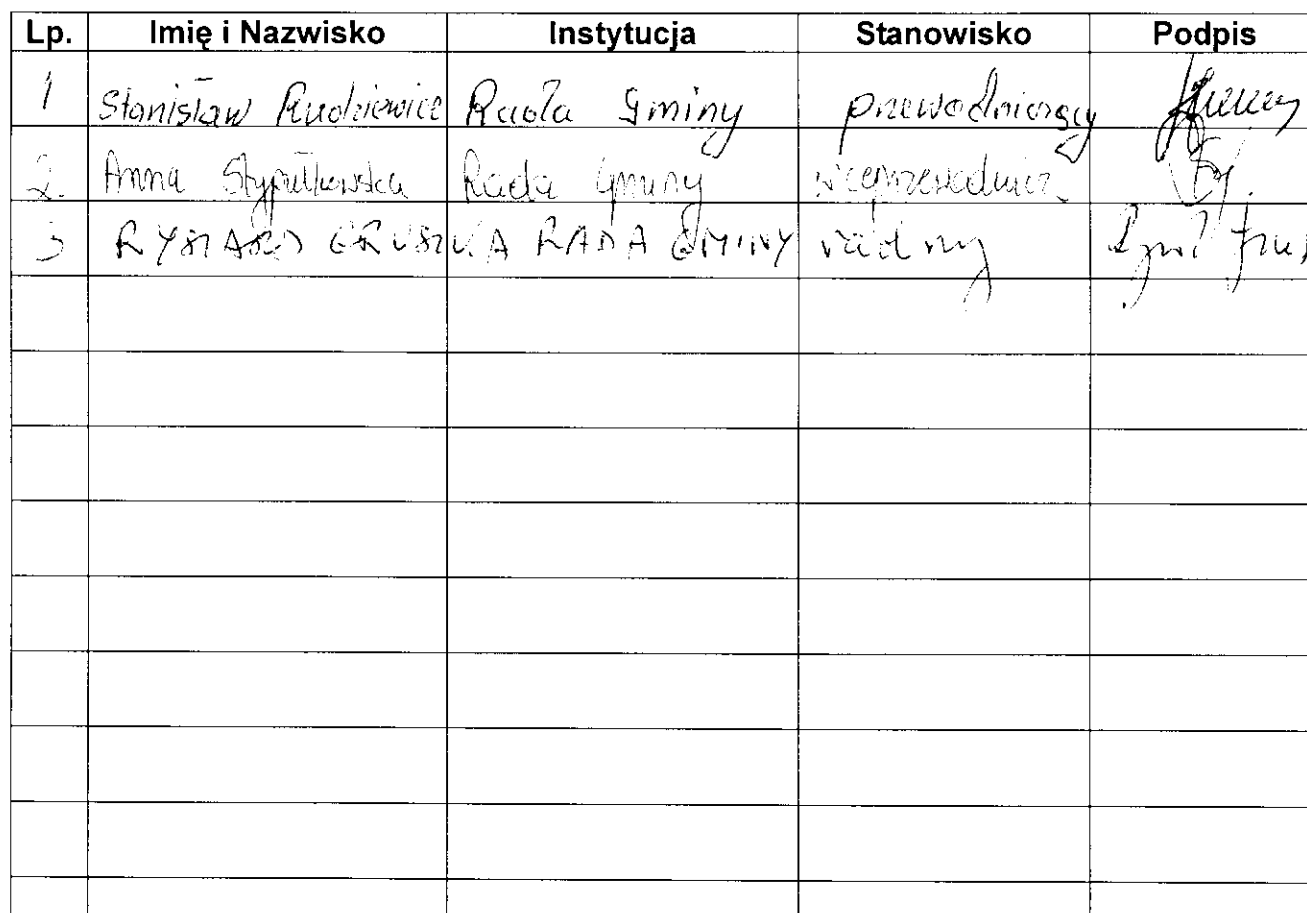 Lp. Imię i Nazwisko Instytucja Stanowisko Podpis
1 Stanisław Rudziewicz Rada Gminy przewodniczący
2. Anna Stypułkowska Rada Gminy wiceprzewodnicz.
3 RYSZARD GRUSZKA RADA GMINY radny